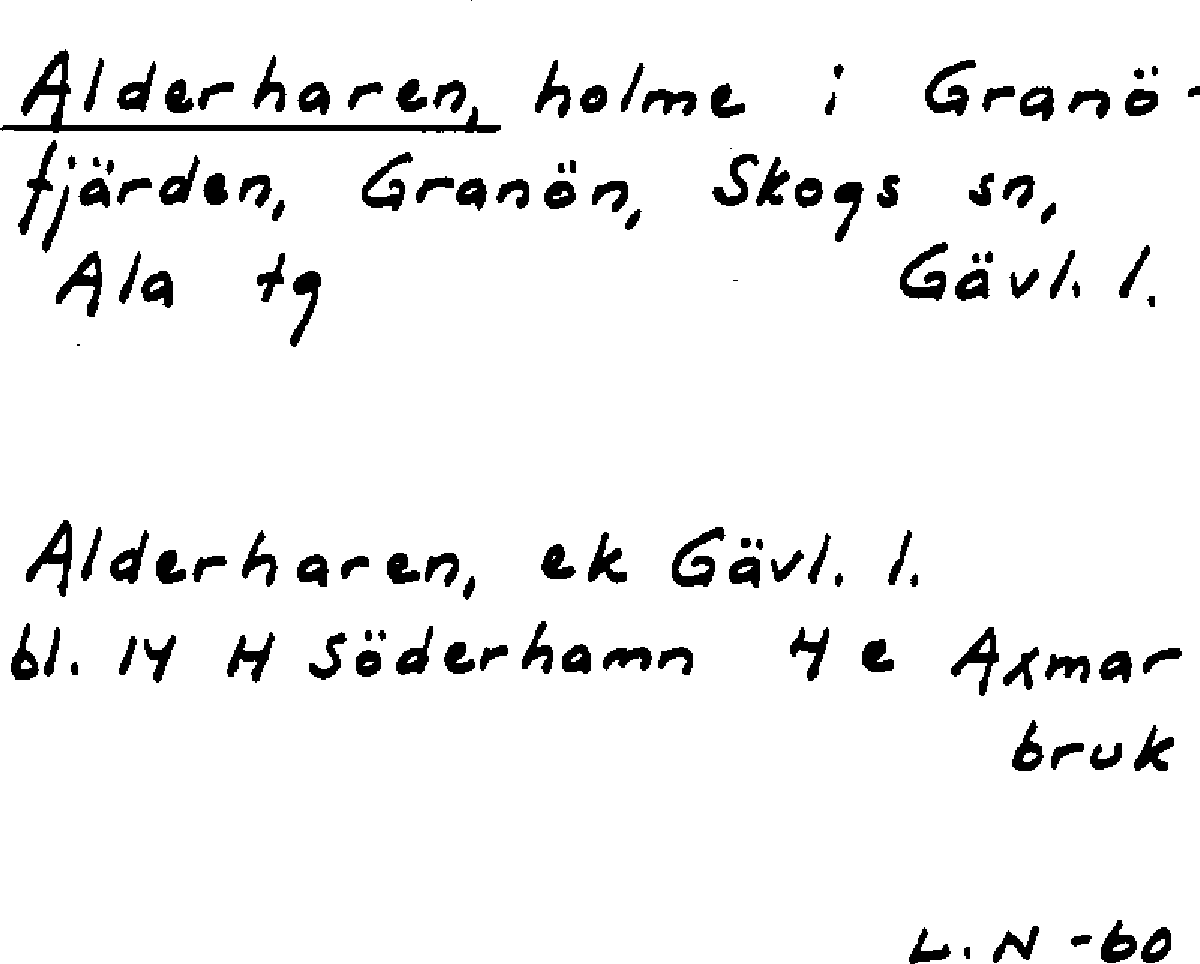 Alderharen, holme i Granö-
fjärden, Granön, Skogs sn,
Ala tg Gävl. l.
Alderharen, ek Gävl. l.
bl. 14 H Söderhamn 4 e Axmar
bruk
L. N -60